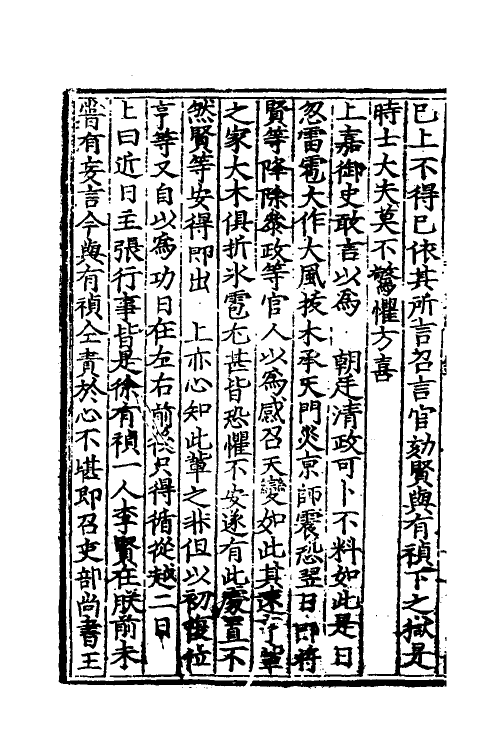 已上不得已依其所言召言官劾賢與有禎下之獄是
時士大夫莫不驚懼方喜
上嘉御史敢言以為　朝廷清政可卜不料如此是日
忽雷雹大作大風拔木承天門災京師震恐翌日即將
賢等降除叅政等官人以為感召天變如此其速亨輩
之家大木俱折氷雹尤甚皆恐懼不安遂有此處置不
然賢等安得即出　上亦心知此輩之非但以初復位
亨等又自以為功日在左右前後只得循從越二日
上曰近日主張行事皆是徐有禎一人李賢在朕前未
嘗有妄言今與有禎仝責於心不堪即召吏部尚書王